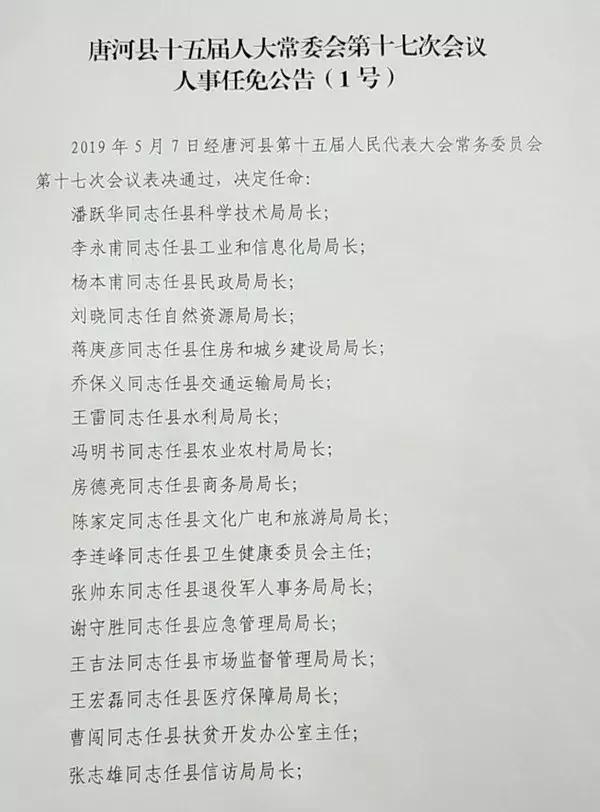 唐河县十五届人大常委会第十七次会议
人事任免公告（1号）
2019年5月7日经唐河县第十五届人民代表大会常务委员会
第十七次会议表决通过，决定任命：
潘跃华同志任县科学技术局局长；
李永甫同志任县工业和信息化局局长；
杨本甫同志任县民政局局长；
刘晓同志任自然资源局局长；
蒋庚彦同志任县住房和城乡建设局局长；
乔保义同志任县交通运输局局长；
王雷同志任县水利局局长；
冯明书同志任县农业农村局局长；
房德亮同志任县商务局局长；
陈家定同志任县文化广电和旅游局局长；
李连峰同志任县卫生健康委员会主任；
张帅东同志任县退役军人事务局局长；
谢守胜同志任县应急管理局局长；
王吉法同志任县市场监督管理局局长；
王宏磊同志任县医疗保障局局长；
曹闯同志任县扶贫开发办公室主任；
张志雄同志任县信访局局长；